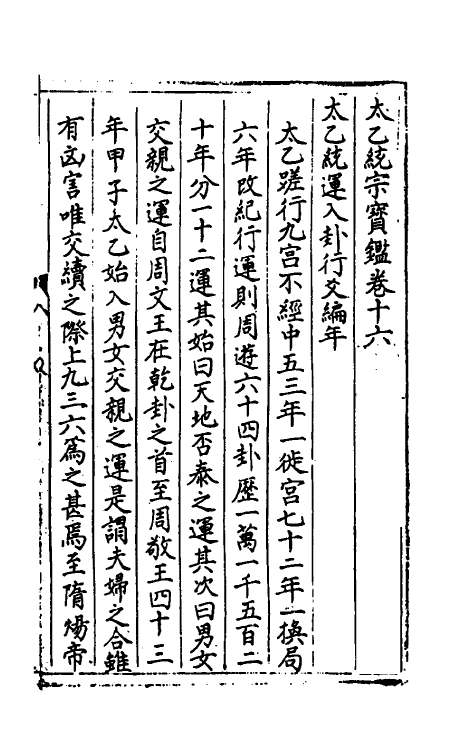 太乙統宗寳鑑卷十六
太乙統運入卦行爻編年
太乙蹉行九宫不經中五三年一徙宫七十二年一換局
六年改紀行運則周遊六十四卦歷一萬一千五百二
十年分一十二運其始曰天地否泰之運其次曰男女
交親之運自周文王在乾卦之首至周敬王四十三
年甲子太乙始入男女交親之運是謂夫婦之合雖
有凶害唯交續之際上九三六爲之甚焉至隋煬帝